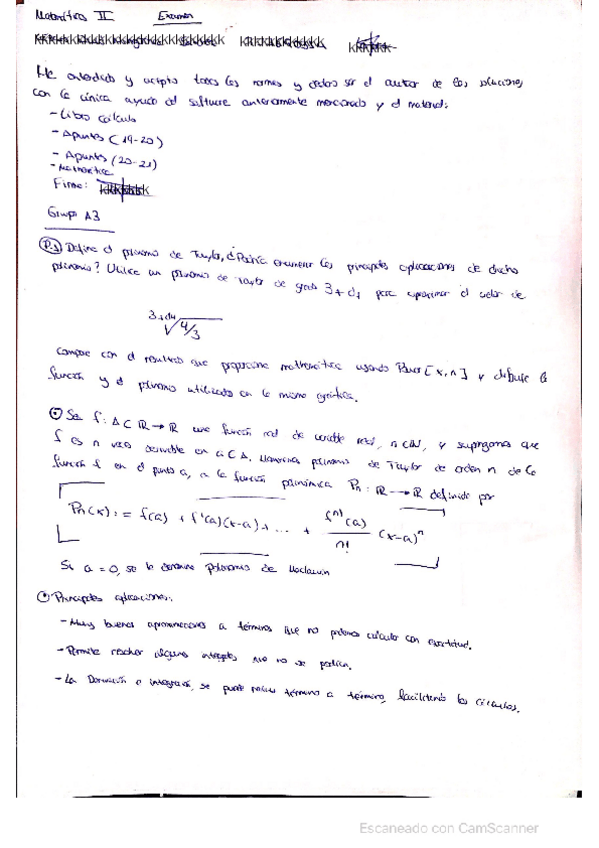 Matemáticas II Examen
He entendido y acepto todas las normas y declaro ser el autor de las soluciones
con la única ayuda del software anteriormente mencionado y el material:
- Libro cálculo
- Apuntes (19-20)
- Apuntes (20-21)
- Mathematica
Firma:
Grupo A3
P.1 Define el polinomio de Taylor, ¿Podría enumerar las principales aplicaciones de dicho
polinomio? Utilice un polinomio de Taylor de grado 3+d₁ para aproximar el valor de
3+d4√4/3
Compare con el resultado que proporcione mathematica usando Power[x,n] y dibuje la
función y el polinomio utilizado en la misma gráfica.
Sea f: A⊂R→R una función real de variable real, n∈N, y supongamos que
f es n veces derivable en a∈A, llamamos polinomio de Taylor de orden n de la
función f en el punto a, a la función polinómica Pn: R→R definida por
Pn(x) := f(a) + f'(a)(x-a) + ... + fⁿ⁾(a)/n! (x-a)ⁿ
Si a = 0, se le denomina Polinomio de Maclaurin
Principales aplicaciones:
- Muy buenas aproximaciones a términos que no podemos calcular con exactitud.
- Permite resolver algunas integrales, que no se podían.
- La Derivación e integración, se puede realizar término a término, facilitando los cálculos.
Escaneado con CamScanner